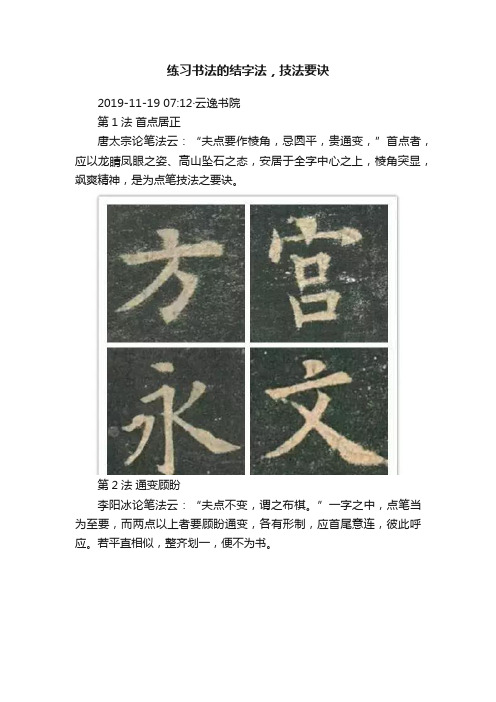 练习书法的结字法，技法要诀
2019-11-19 07:12·云逸书院
第1法 首点居正
唐太宗论笔法云：“夫点要作棱角，忌圆平，贵通变，”首点者，
应以龙睛凤眼之姿、高山坠石之态，安居于全字中心之上，棱角突显，
飒爽精神，是为点笔技法之要诀。
方 宫
永 文
第2法 通变顾盼
李阳冰论笔法云：“夫点不变，谓之布棋。”一字之中，点笔当
为至要，而两点以上者要顾盼通变，各有形制，应首尾意连，彼此呼
应。若平直相似，整齐划一，便不为书。